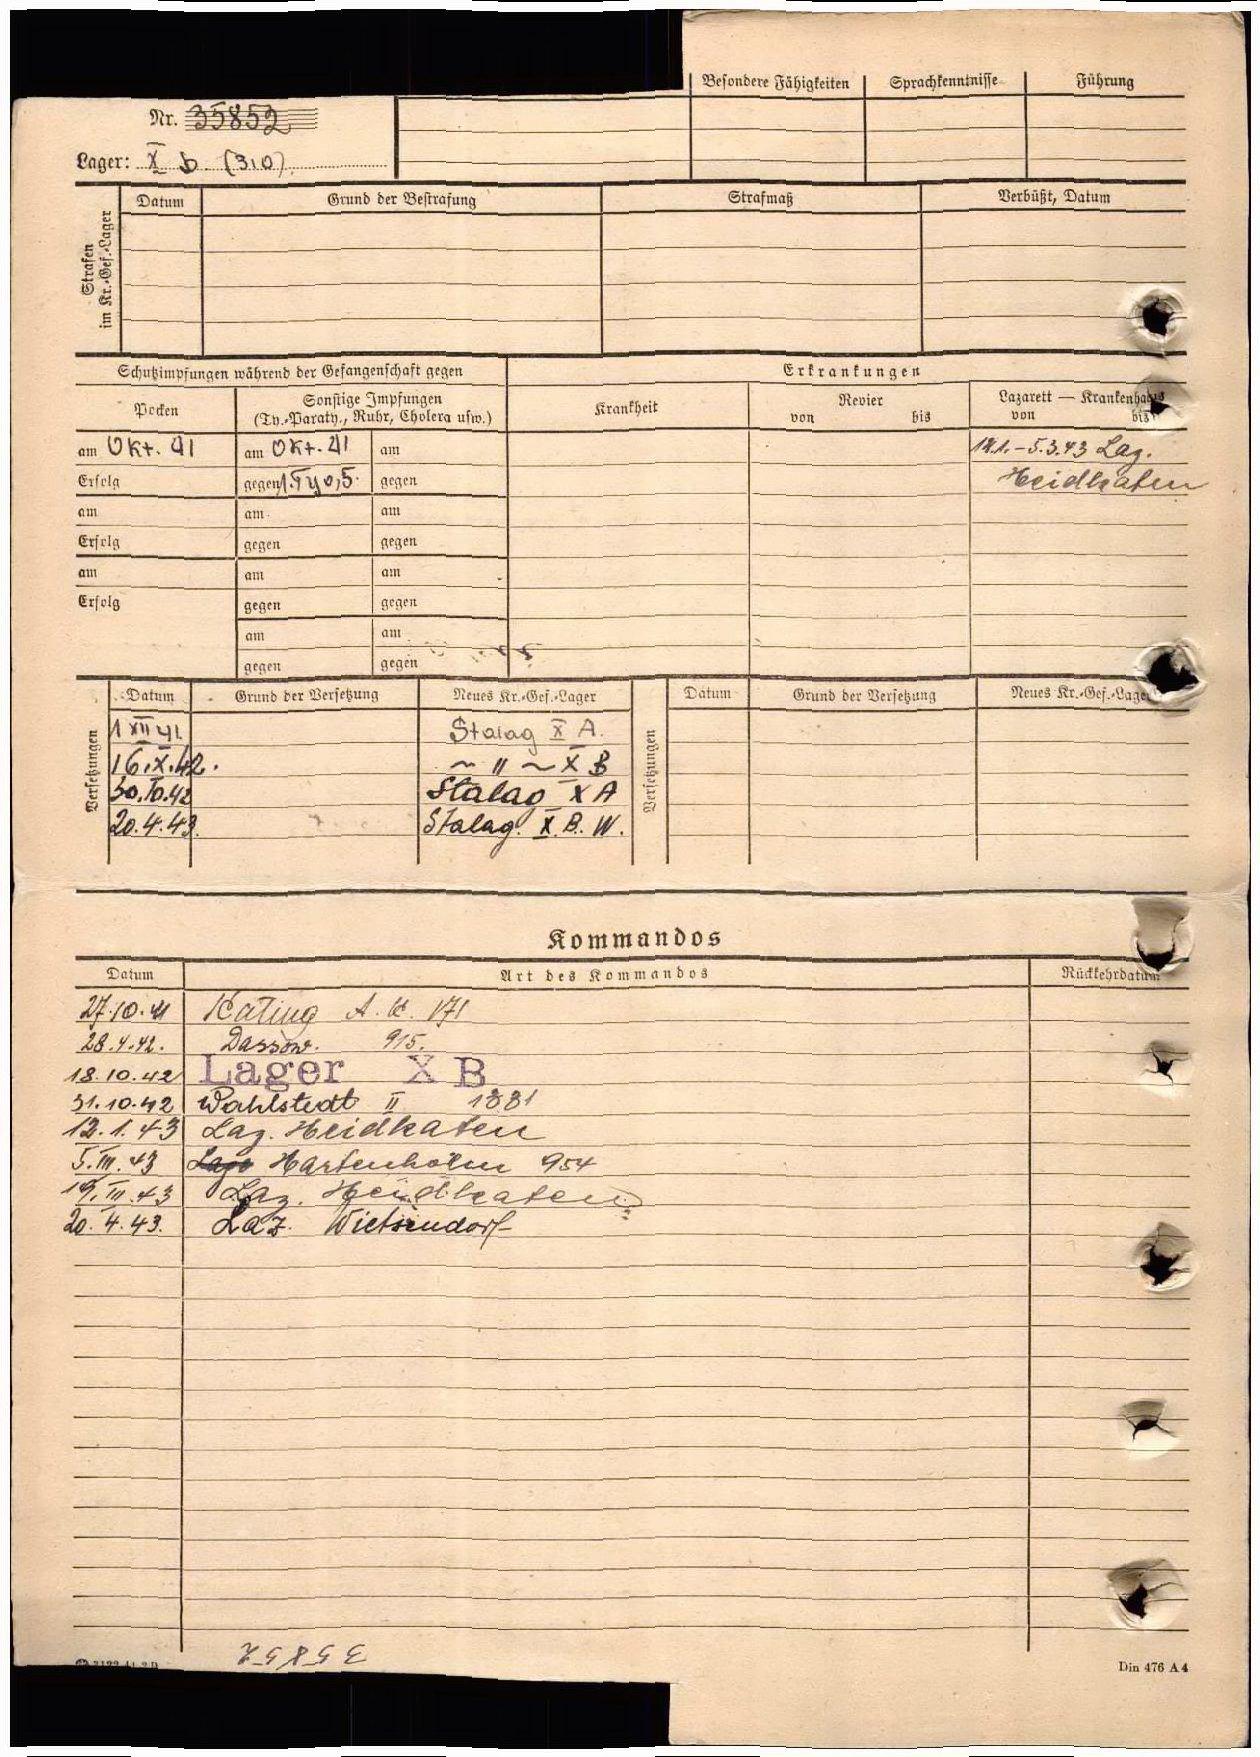 Besondere Fähigkeiten Sprachkenntnisse Führung
Nr. 35852
Lager: X b (310)
Strafen im Kr.-Gef.-Lager
Datum Grund der Bestrafung Strafmaß Verbüßt, Datum
Schutzimpfungen während der Gefangenschaft gegen Erkrankungen
Pocken Sonstige Impfungen (Ty.-Paraty., Ruhr, Cholera usw.) Krankheit Revier von bis Lazarett — Krankenhaus von bis
am Okt. 41 am Okt. 41 am 12.1. – 5.3.43 Laz.
Erfolg gegen 1.Ty 0,5 gegen Heidkaten
am am am
Erfolg gegen gegen
am am am
Erfolg gegen gegen
am am
gegen gegen
Versetzungen Datum Grund der Versetzung Neues Kr.-Gef.-Lager Versetzungen Datum Grund der Versetzung Neues Kr.-Gef.-Lager
1 XII 41. Stalag X A.
16.X.42. ~ " ~ X B
30.10.42 Stalag X A
20.4.43. Stalag. X. B. W.
Kommandos
Datum Art des Kommandos Rückkehrdatum
27.10.41 Kating A. K. 171
28.4.42. Dassow. 915.
18.10.42 Lager X B
31.10.42 Wahlstedt II 1881
12.1.43 Laz. Heidkaten
5.III.43 Hartenholm 954
19.III.43 Laz. Heidkaten
20.4.43. Laz. Wietzendorf
35852
Din 476 A4